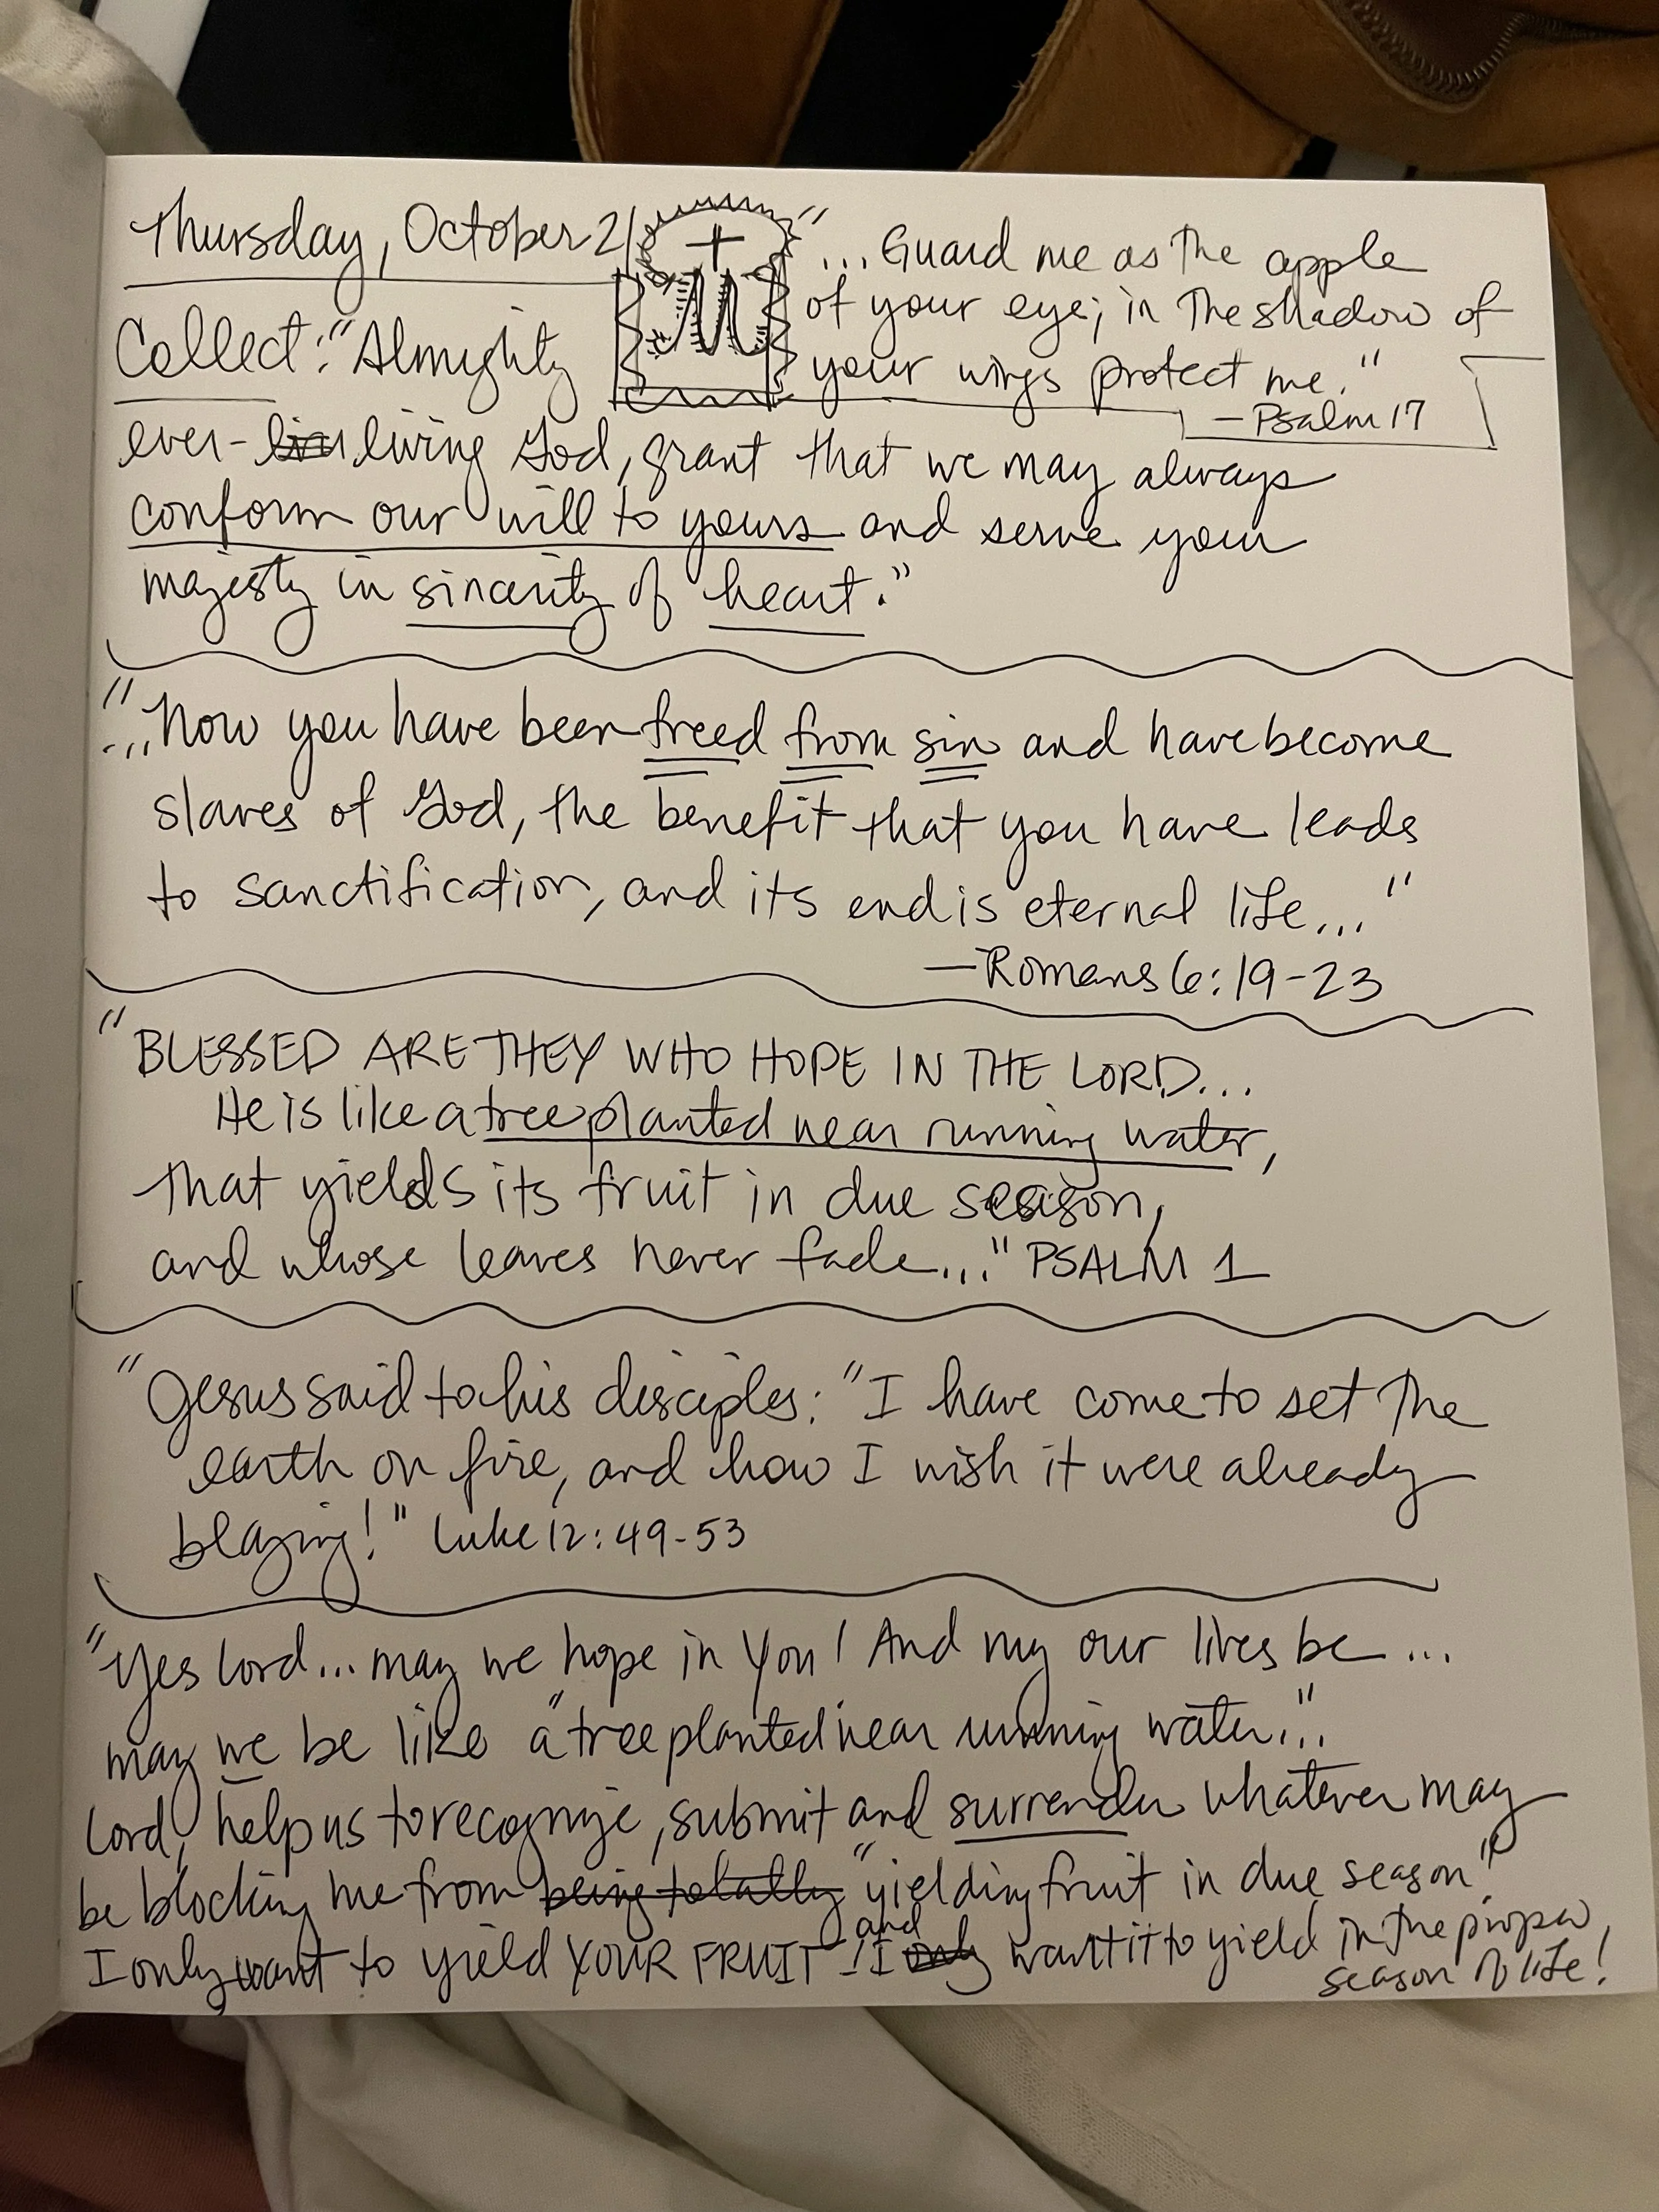 Thursday, October 21
"...Guard me as the apple
of your eye; in the shadow of
your wings protect me."
—Psalm 17
Collect: "Almighty
ever-living God, grant that we may always
conform our will to yours and serve your
majesty in sincerity of heart."
"...Now you have been freed from sin and have become
slaves of God, the benefit that you have leads
to sanctification, and its end is eternal life..."
—Romans 6:19-23
"BLESSED ARE THEY WHO HOPE IN THE LORD...
He is like a tree planted near running water,
that yields its fruit in due season,
and whose leaves never fade..." PSALM 1
"Jesus said to his disciples: "I have come to set the
earth on fire, and how I wish it were already
blazing!" Luke 12:49-53
"Yes Lord... may we hope in You! And may our lives be...
may we be like a "tree planted near running water..."
Lord, help us to recognize, submit and surrender whatever may
be blocking me from being totally "yielding fruit in due season"
I only want to yield YOUR FRUIT! and I only want it to yield in the proper
season of life!